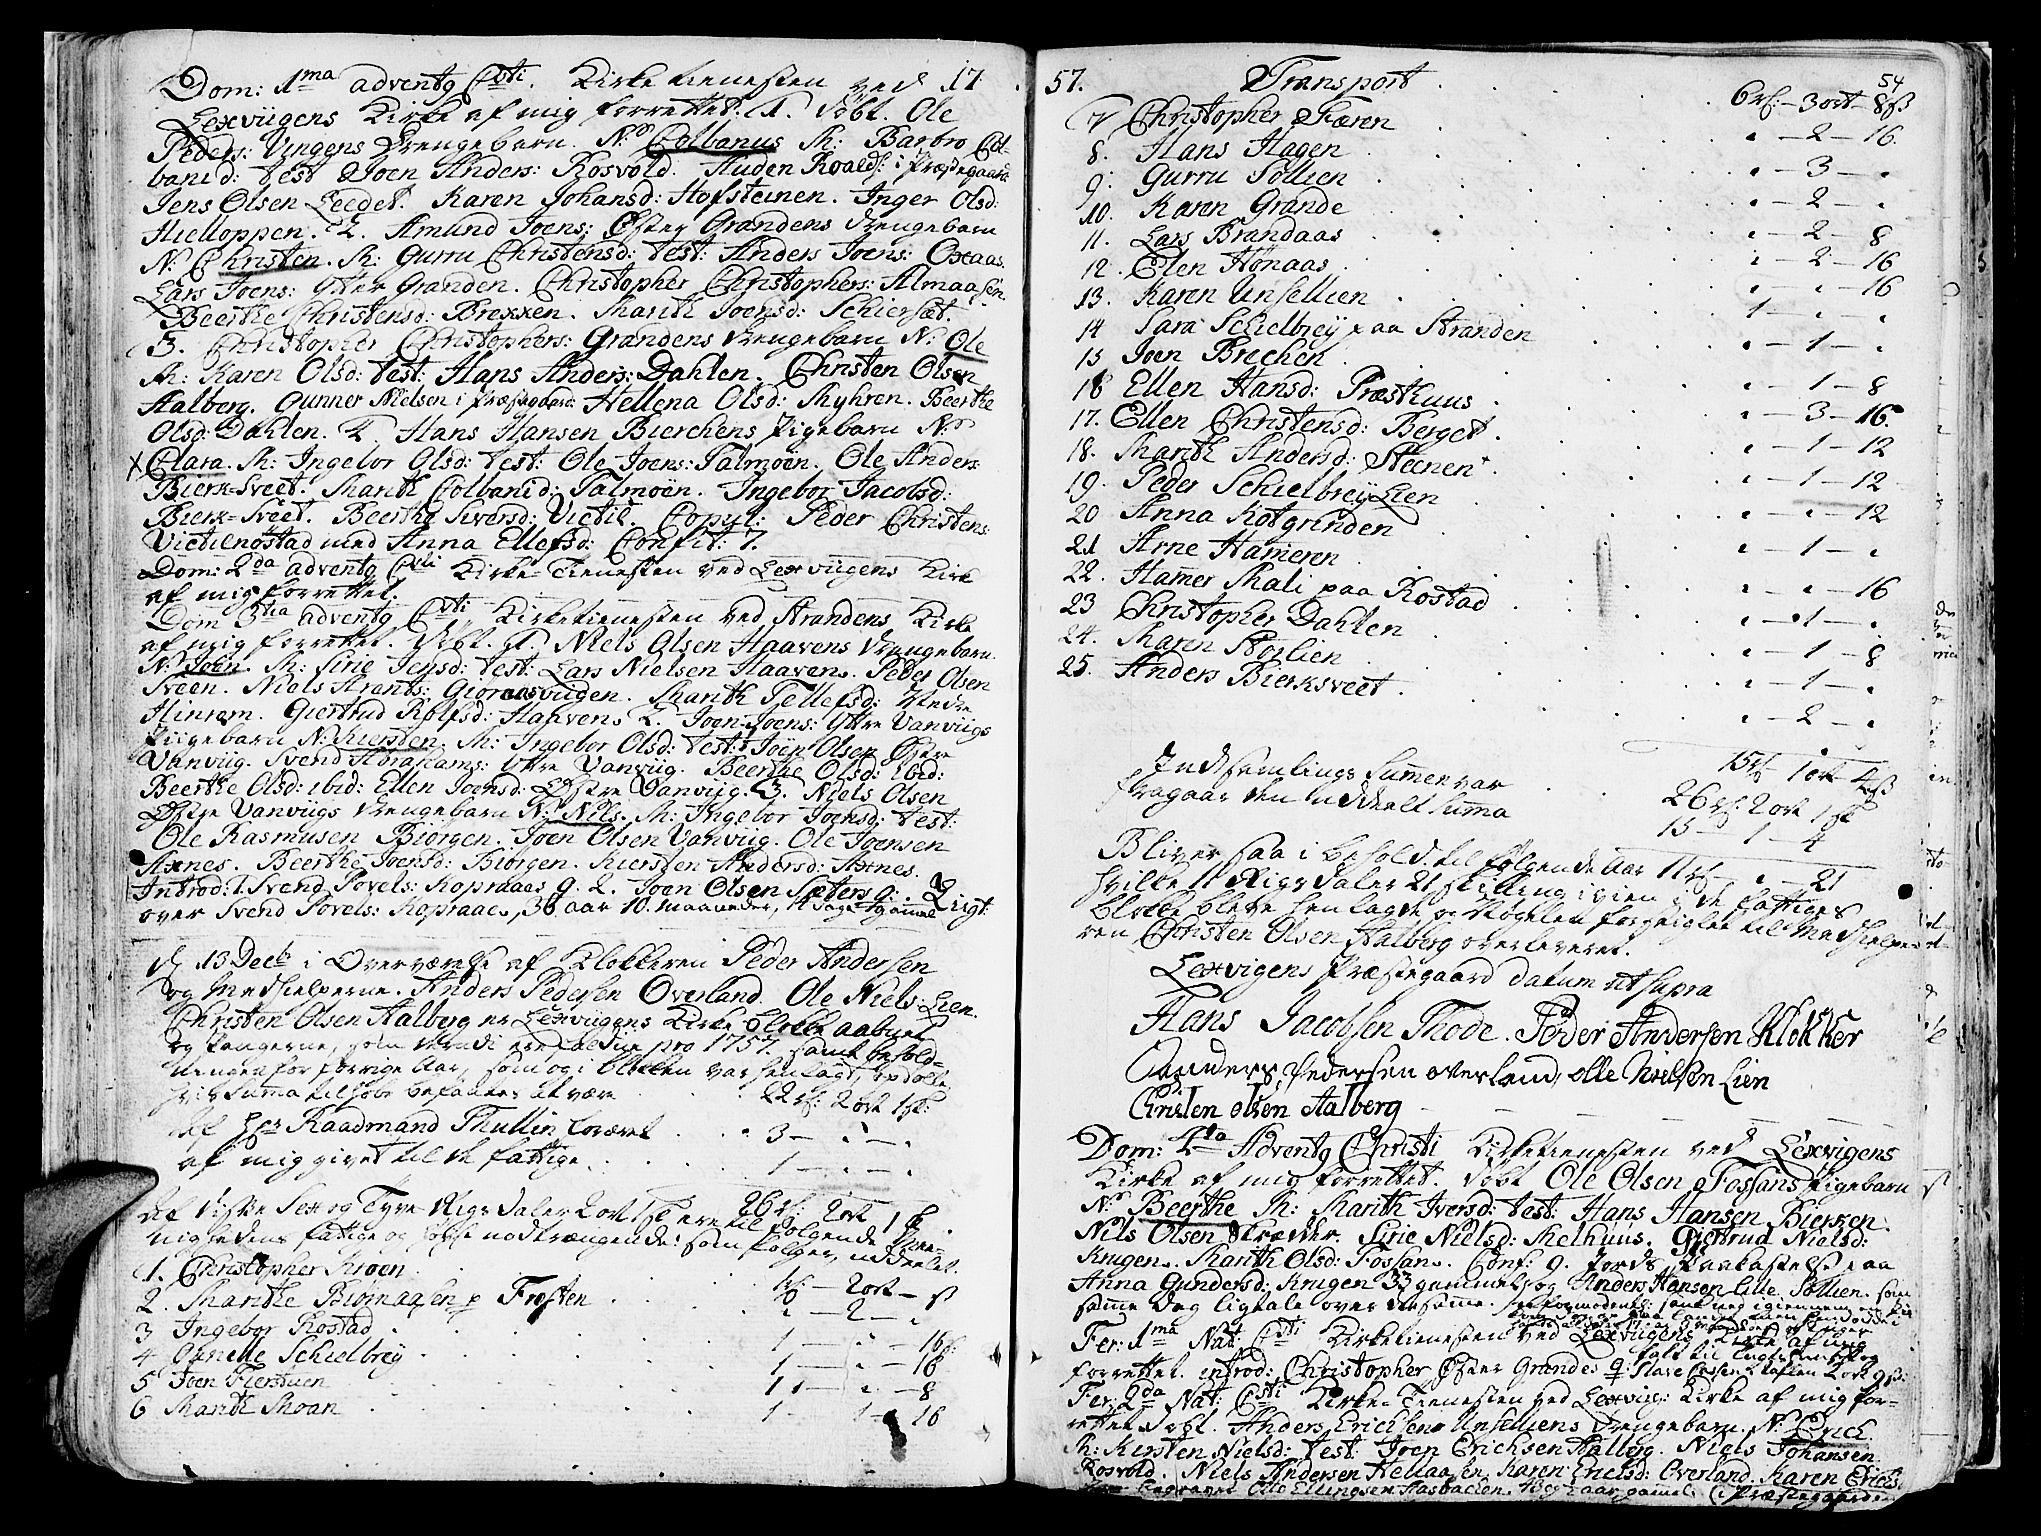 Dom: 1ma advent9 Csti. Kirke tienesten ved 17
Lexviigens Kirke af mig forrettet. 1. Döbt. Ole
Peders: Vingens Drengebarn. No Colbanus M: Barbro Col-
banid: test Joen Anders: Rosvold. Auden Roalds: i Præstegaard
Jens Olsen Leedet. Karen Johansd: Hofsteinen. Inger Olsd:
Hielloppen. 2. Amund Joens: Öster Grandens Drengebarn
N: Christen. M: Gurru Christensd: test: Anders Joens: Oxaas.
Lars Joens: Ytter Granden. Christopher Christophers: Almaasen.
Beerthe Christensd: Brexxen. Marith Joensd: Schiersæt.
3. Christopher Christophers: Grandens Drengebarn N: Ole
M: Karen Olsd: test: Hans Anders: Dahlen. Christen Olsen
Aalberg. Gunner Nielsen i Præstegaard: Hellena Olsd: Myhren. Beerthe
Olsd: Dahlen. 4. Hans Hansen Bierchens Pigebarn No
x Clara. M: Ingebor Olsd: test: Ole Joens: Talmoen. Ole Anders:
Bierk-Sveet. Marith Colbanid: Talmoen. Ingebor Jacobsd:
Bierk-Sveet. Beerthe Siversd: Victil. Copul: Peder Christens:
Victilnöstad med Anna Ellefsd: Confit: 7.
Dom: 2da advent9 Csti Kirke-Tienesten ved Lexviigens Kirke
af mig forrettet.
Dom 3tia advent9 Csti Kirketienesten ved Strandens Kirke
af mig forrettet. Döbt. 1. Niels Olsen Haavens Drengebarn.
N: Joen. M: Sirie Jensd: test: Lars Nielsen Haaven. Peder Olsen
Sveen. Niels Arents: Marith Tellefsd: Nedre
Hinrem. Giertrud Rolfsd: Haaven. 2. Joen Joens: Yttre Vanviigs
Piigebarn N: Kiersten. M: Ingebor Olsd: test: Joen Olsen Östre
Vanviig. Svend Abrahams: Yttre Vanviig. Beerthe Olsd: Ibid:
Beerthe Olsd: ibid: Ellen Joensd: Östre Vanviig. 3. Niels Olsen
Östre Vanviigs Drengebarn N: Nils. M: Ingebor Joensd: test:
Ole Rasmusen Biörgen. Joen Olsen Vanviig. Ole Joensen
Axnes. Beerthe Joensd: Biörgen. Kiersten Andersd: Axnes.
Introd: 1. Svend Povels: Kopraaes q. 2. Joen Olsen Sæters q: Liigt:
over Svend Povels: Kopraae, 36 aar 10. maaneder, gammel
d 13 Decbr i Overværelse af Klokkeren Peder Andersen
og Medhielperne. Anders Pedersen Overland. Ole Niels: Lien.
Christen Olsen Aalberg er Lexviigens Kirke blokke aabnet
og Pengerne, som derudi ere faldne pro 1757. samt behold-
ningen for forrige Aar, som og i blokken var henlagt, optalte
hvis Summa til hobe befandtes at være 22 rd: 2 ort 1 sk:
Af Hr Raadmand Thullin foræret 3 — . — .
af mig givet til de fattige 1 — . — .
26 rd: 2 ort 1 sk.
Af disse Sex og Tyve Rigsdaler 2 ort 1 sk ere til følgende Præste-
nigieldens fattige og høyst nødtrængende: som følger, uddeelt.
1. Christopher Moen 1 rd — 2 ort — sk
2. Marithe Biörnaasen p Frosten . — 2 — .
3 Ingebor Rostad 1 — . — 16 sk:
4 Schielbrey 1 — . — 16
5 Joen Fierstuen 1 — . — 8
6 Marith Moan 1 — 1 — 16
57. Transport 54
6 rd: — 3 ort — 8 sk
7 Christopher Færen . — 2 — 16.
8. Hans Hagen . — 3 — .
9. Gurru Sollien . — 2 — .
10. Karen Grande . — 2 — 8
11. Lars Brandaas . — 2 — 16
12. Elen Hönaas . — . — 16
13. Karen Unsellien 1 — . — .
14 Sara Schielbrey paa Stranden . — 1 — .
15 Joen Brechen . — 1 — 8
16 Ellen Hansd: Præsthuus . — 3 — 16
17. Ellen Christensd: Berget . — 1 — 12
18. Marith Andersd: Steenen . — 1 — 12
19. Peder Schielbrey Lien . — . — 12
20 Anna Kotgrinden . — 1 — .
21 Arne Hameren . — . — 16
22. Hamer Mali paa Rostad . — 1 — .
23 Christopher Dahlen . — 1 — 8
24. Maren Storlien . — 1 — .
25. Anders Bierksveet . — 2 — .
15 rd — 1 ort 4 sk
Indsamlings Summen var 26 rd: 2 ort 1 sk
fragaar den uddeelt Summa 15 — 1 — 4
Bliver saa i behold til følgende Aar 11 rd — . — 21
hvilke 11 Rigsdaler 21 skilling igien i de fattiges
blokke bleve henlagde og Nøgelen forseiglet til Medhielpe-
ren Christen Olsen Aalberg overleveret.
Lexvigens Præstegaard datum ut supra
Hans Jacobsen Thode. Peder Andersen Klokker
Anders Pedersen overland, olle Nielsen Lien
Christen olsen Aalberg
Dom: 4ta Advent9 Christi Kirketienesten ved Lexvigens
Kirke af mig forrettet. Döbt Ole Olsen Fossans Pigebarn
No Beerthe M: Marith Iversd: test: Hans Hansen Bierken.
Nils Olsen Skræder. Sirie Nielsd: Melhuus. Giertrud Nielsd:
Krugen. Marith Olsd: Fossan. Conf: 9. Jords Paakastelse paa
Anna Gundersd: Krugen 33 gammel, og Anders Hansen Lille Sollien. som
samme Dag ligtale over de samme.
Fer: 1ma Nat: Csti Kirketienesten ved Lexviigens Kirke af mig
forrettet. introd: Christopher Öster Grandes q
Fer: 2da Nat: Csti Kirke-Tienesten ved Lexviig: Kirke af mig for-
rettet Döbt. Anders Erichsen Unselliens Drengebarn. N: Erich.
M: Kirsten Nielsd: test: Joen Erichsen Aalberg. Niels Johansen
Rosvold. Niels Andersen Hellaasen. Karen Erichsd: Overland. Karen Erichs:
Begravet Ole Ellingsen Hasbachen. aar gammel. (i Præstegaarden